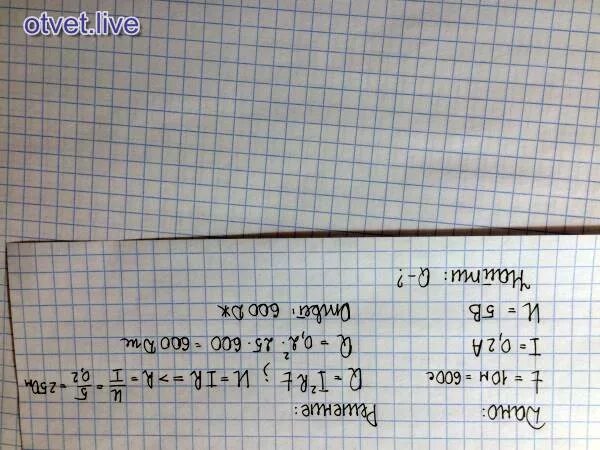 otvet.live
Дано:
t = 10м = 600с
I = 0,2А
U = 5В
Найти: Q-?
Решение:
Q = I²Rt ; U = IR => R = U/I = 5/0,2 = 25Ом
Q = 0,2² · 25 · 600 = 600Дж
Ответ: 600Дж